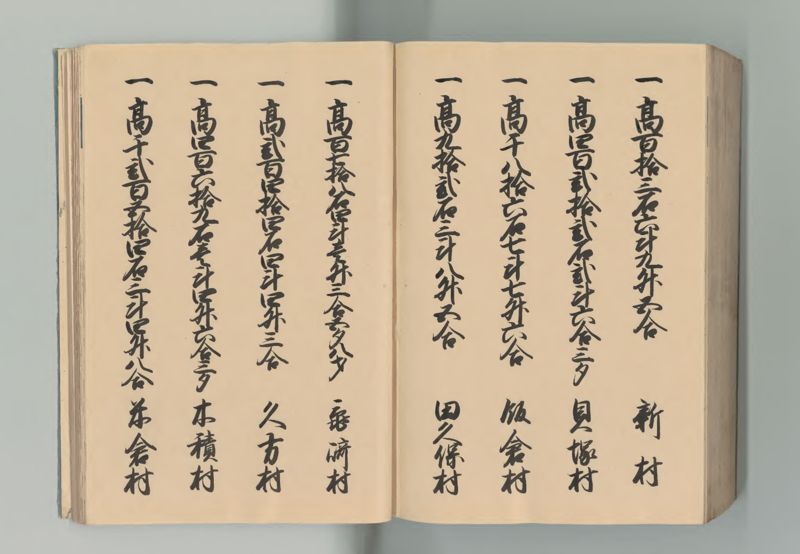 一 高百拾三石六斗九升五合 新村
一 高四百弐拾弐石弐斗六合三夕 貝塚村
一 高千八拾六石七斗七升六合 飯倉村
一 高九拾弐石三斗八升五合 田久保村
一 高百七拾八石四斗壱升三合五夕八才 村
一 高弐百四拾四石四斗四升三合 久方村
一 高四百六拾九石壱斗四升六合三夕 木積村
一 高千弐百五拾四石三斗四升八合 米倉村